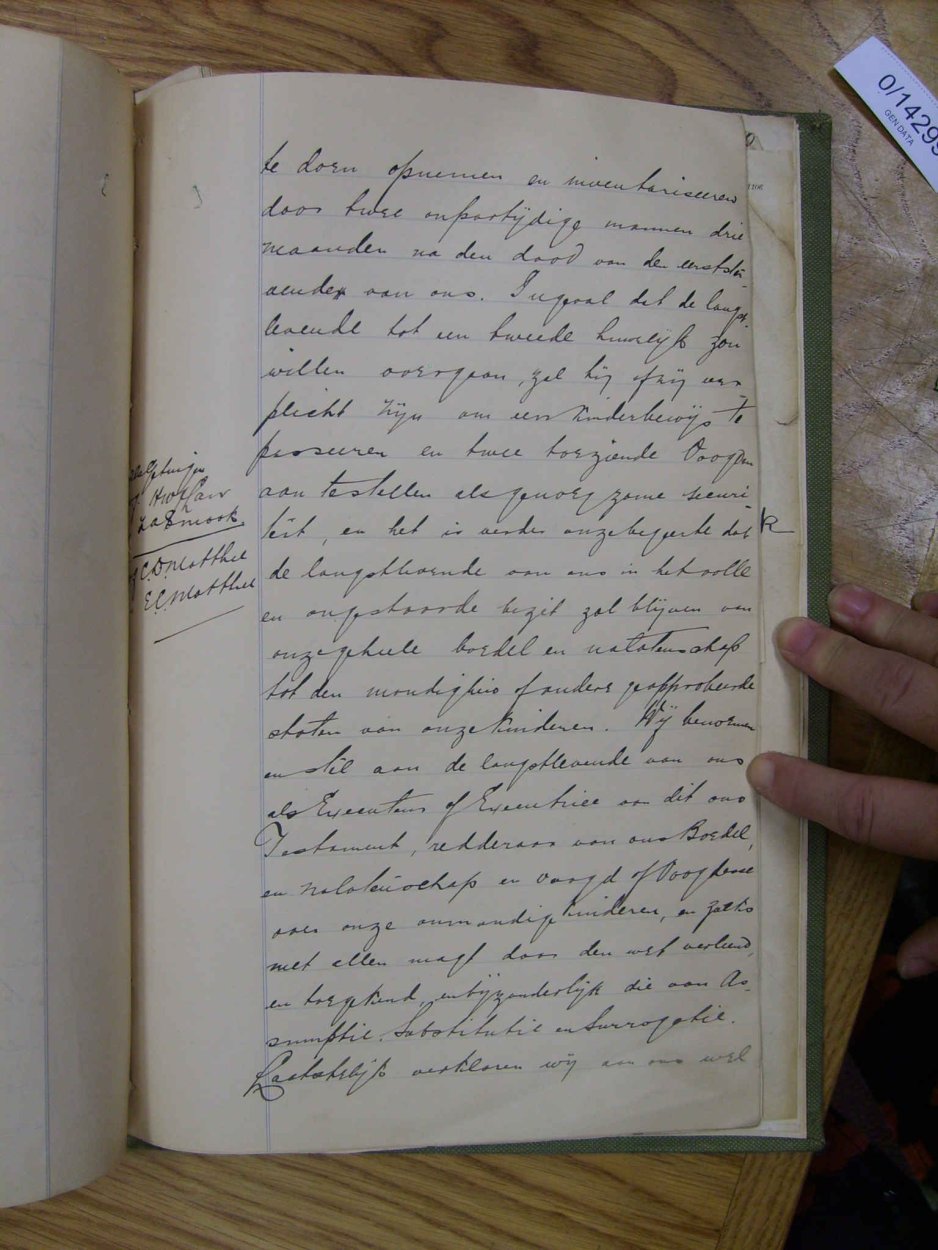 te doen opnemen en inventariseeren
door twee onpartijdige mannen drie
maanden na den dood van de eerstster-
vende van ons. Ingeval dat de langst-
levende tot een tweede huwelijk zou
willen overgaan, zal hij of zij ver
plicht zijn om een Kinderbewijs te
passeeren en twee toeziende Voogden
aan testellen als genoegzame securi
teit, en het is verder onze begeerte dat
de langstlevende van ons in het volle
en ongestoorde bezit zal blijven van
onze geheele boedel en nalatenschap
tot den mondigheid of andere geapprobeerde
staten van onze Kinderen. Wij benoemen
en stel aan de langstlevende van ons
als Executeur of Executrice van dit ons
Testament, redderaar van ons Boedel,
en nalatenschap en voogd of Vooghesse
over onze onmondige Kinderen, en zulks
met allen magt door den wet verleend,
en toegekend, en bijzonderlijk die van As-
sumptie, Substitutie en Surrogatie.
Laatstelijk verklaren wij aan ons wel
als Getuigen
C. D. Matthee
E. C. Matthee
0/14299
GEN DATA